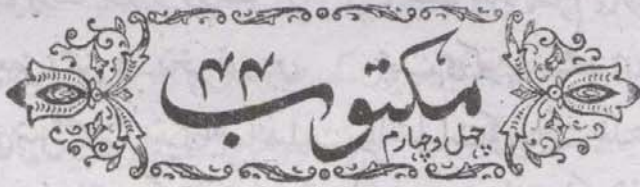 مکتوب ۴۴
چہل و چہارم